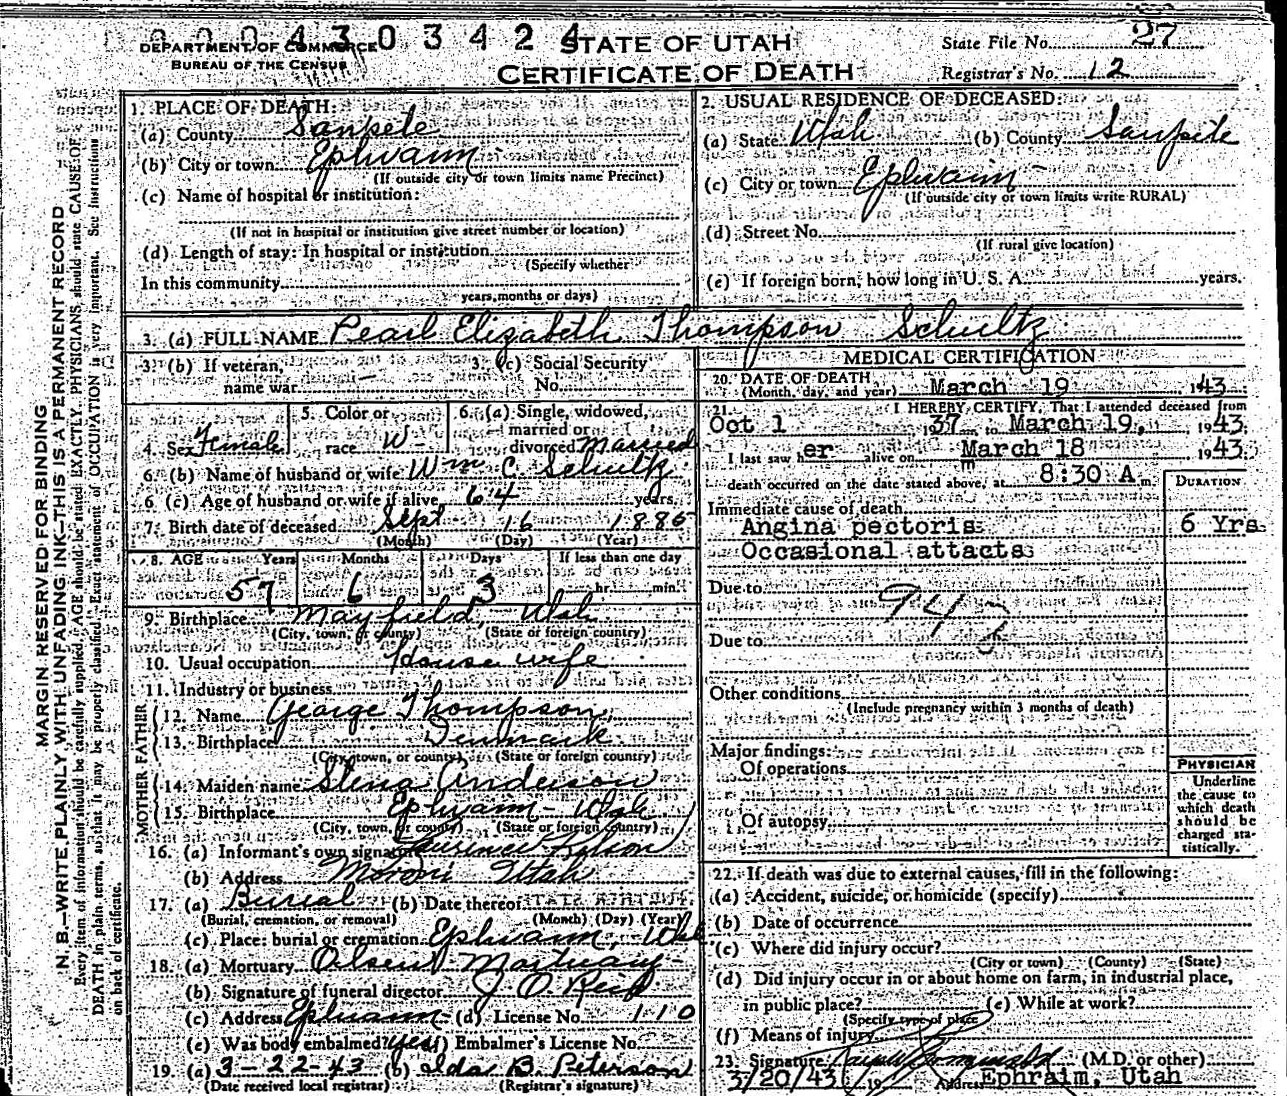 0004303424
DEPARTMENT OF COMMERCE
BUREAU OF THE CENSUS
STATE OF UTAH
CERTIFICATE OF DEATH
State File No. 27
Registrar's No. 12
MARGIN RESERVED FOR BINDING
N. B.—WRITE PLAINLY, WITH UNFADING INK—THIS IS A PERMANENT RECORD
Every item of information should be carefully supplied. AGE should be stated EXACTLY. PHYSICIANS should state CAUSE OF
DEATH in plain terms, so that it may be properly classified. Exact statement of OCCUPATION is very important. See instructions
on back of certificate.
1. PLACE OF DEATH:
(a) County Sanpete
(b) City or town Ephraim
(If outside city or town limits name Precinct)
(c) Name of hospital or institution:
(If not in hospital or institution give street number or location)
(d) Length of stay: In hospital or institution
(Specify whether
In this community
years, months or days)
2. USUAL RESIDENCE OF DECEASED:
(a) State Utah (b) County Sanpete
(c) City or town Ephraim
(If outside city or town limits write RURAL)
(d) Street No.
(If rural give location)
(e) If foreign born, how long in U. S. A. years.
3. (a) FULL NAME Pearl Elizabeth Thompson Schultz
3. (b) If veteran,
name war —
3. (c) Social Security
No.
4. Sex Female
5. Color or
race W-
6. (a) Single, widowed,
married or
divorced Married
6. (b) Name of husband or wife Wm C. Schultz
6 (c) Age of husband or wife if alive 64 years.
7. Birth date of deceased Sept 16 1885
(Month) (Day) (Year)
8. AGE Years Months Days If less than one day
57 6 3 hr. min.
9. Birthplace Mayfield, Utah
(City, town, or county) (State or foreign country)
10. Usual occupation House wife
11. Industry or business
FATHER
12. Name George Thompson
13. Birthplace Denmark
(City, town, or county) (State or foreign country)
MOTHER
14. Maiden name Stena Anderson
15. Birthplace Ephraim - Utah
(City, town, or county) (State or foreign country)
16. (a) Informant's own signature
(b) Address Moroni Utah
17. (a) Burial (b) Date thereof
(Burial, cremation, or removal) (Month) (Day) (Year)
(c) Place: burial or cremation Ephraim, Utah
18. (a) Mortuary Olsens Mortuary
(b) Signature of funeral director
(c) Address Ephraim (d) License No. 110
(e) Was body embalmed? yes (f) Embalmer's License No.
19. (a) 3-22-43 (b) Ida B. Peterson
(Date received local registrar) (Registrar's signature)
MEDICAL CERTIFICATION
20. DATE OF DEATH
(Month, day, and year) March 19 1943
21. I HEREBY CERTIFY, That I attended deceased from
Oct 1 1937 to March 19, 1943.
I last saw her alive on March 18 1943.
death occurred on the date stated above, at 8:30 A m.
DURATION
Immediate cause of death
Angina pectoris 6 Yrs.
Occasional attacts
Due to
94
Due to
Other conditions
(Include pregnancy within 3 months of death)
Major findings:
Of operations
Of autopsy
PHYSICIAN
Underline
the cause to
which death
should be
charged sta-
tistically.
22. If death was due to external causes, fill in the following:
(a) Accident, suicide, or homicide (specify)
(b) Date of occurrence
(c) Where did injury occur?
(City or town) (County) (State)
(d) Did injury occur in or about home on farm, in industrial place,
in public place? (e) While at work?
(Specify type of place
(f) Means of injury
23. Signature (M.D. or other)
3/20/43 19 Address Ephraim, Utah